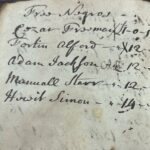 Free Negros
Cezar Freeman 1-0-1
Fortin Alford 12
Adam Jackson 12
Manuall Starr - 12
Hirsit Simon - 14